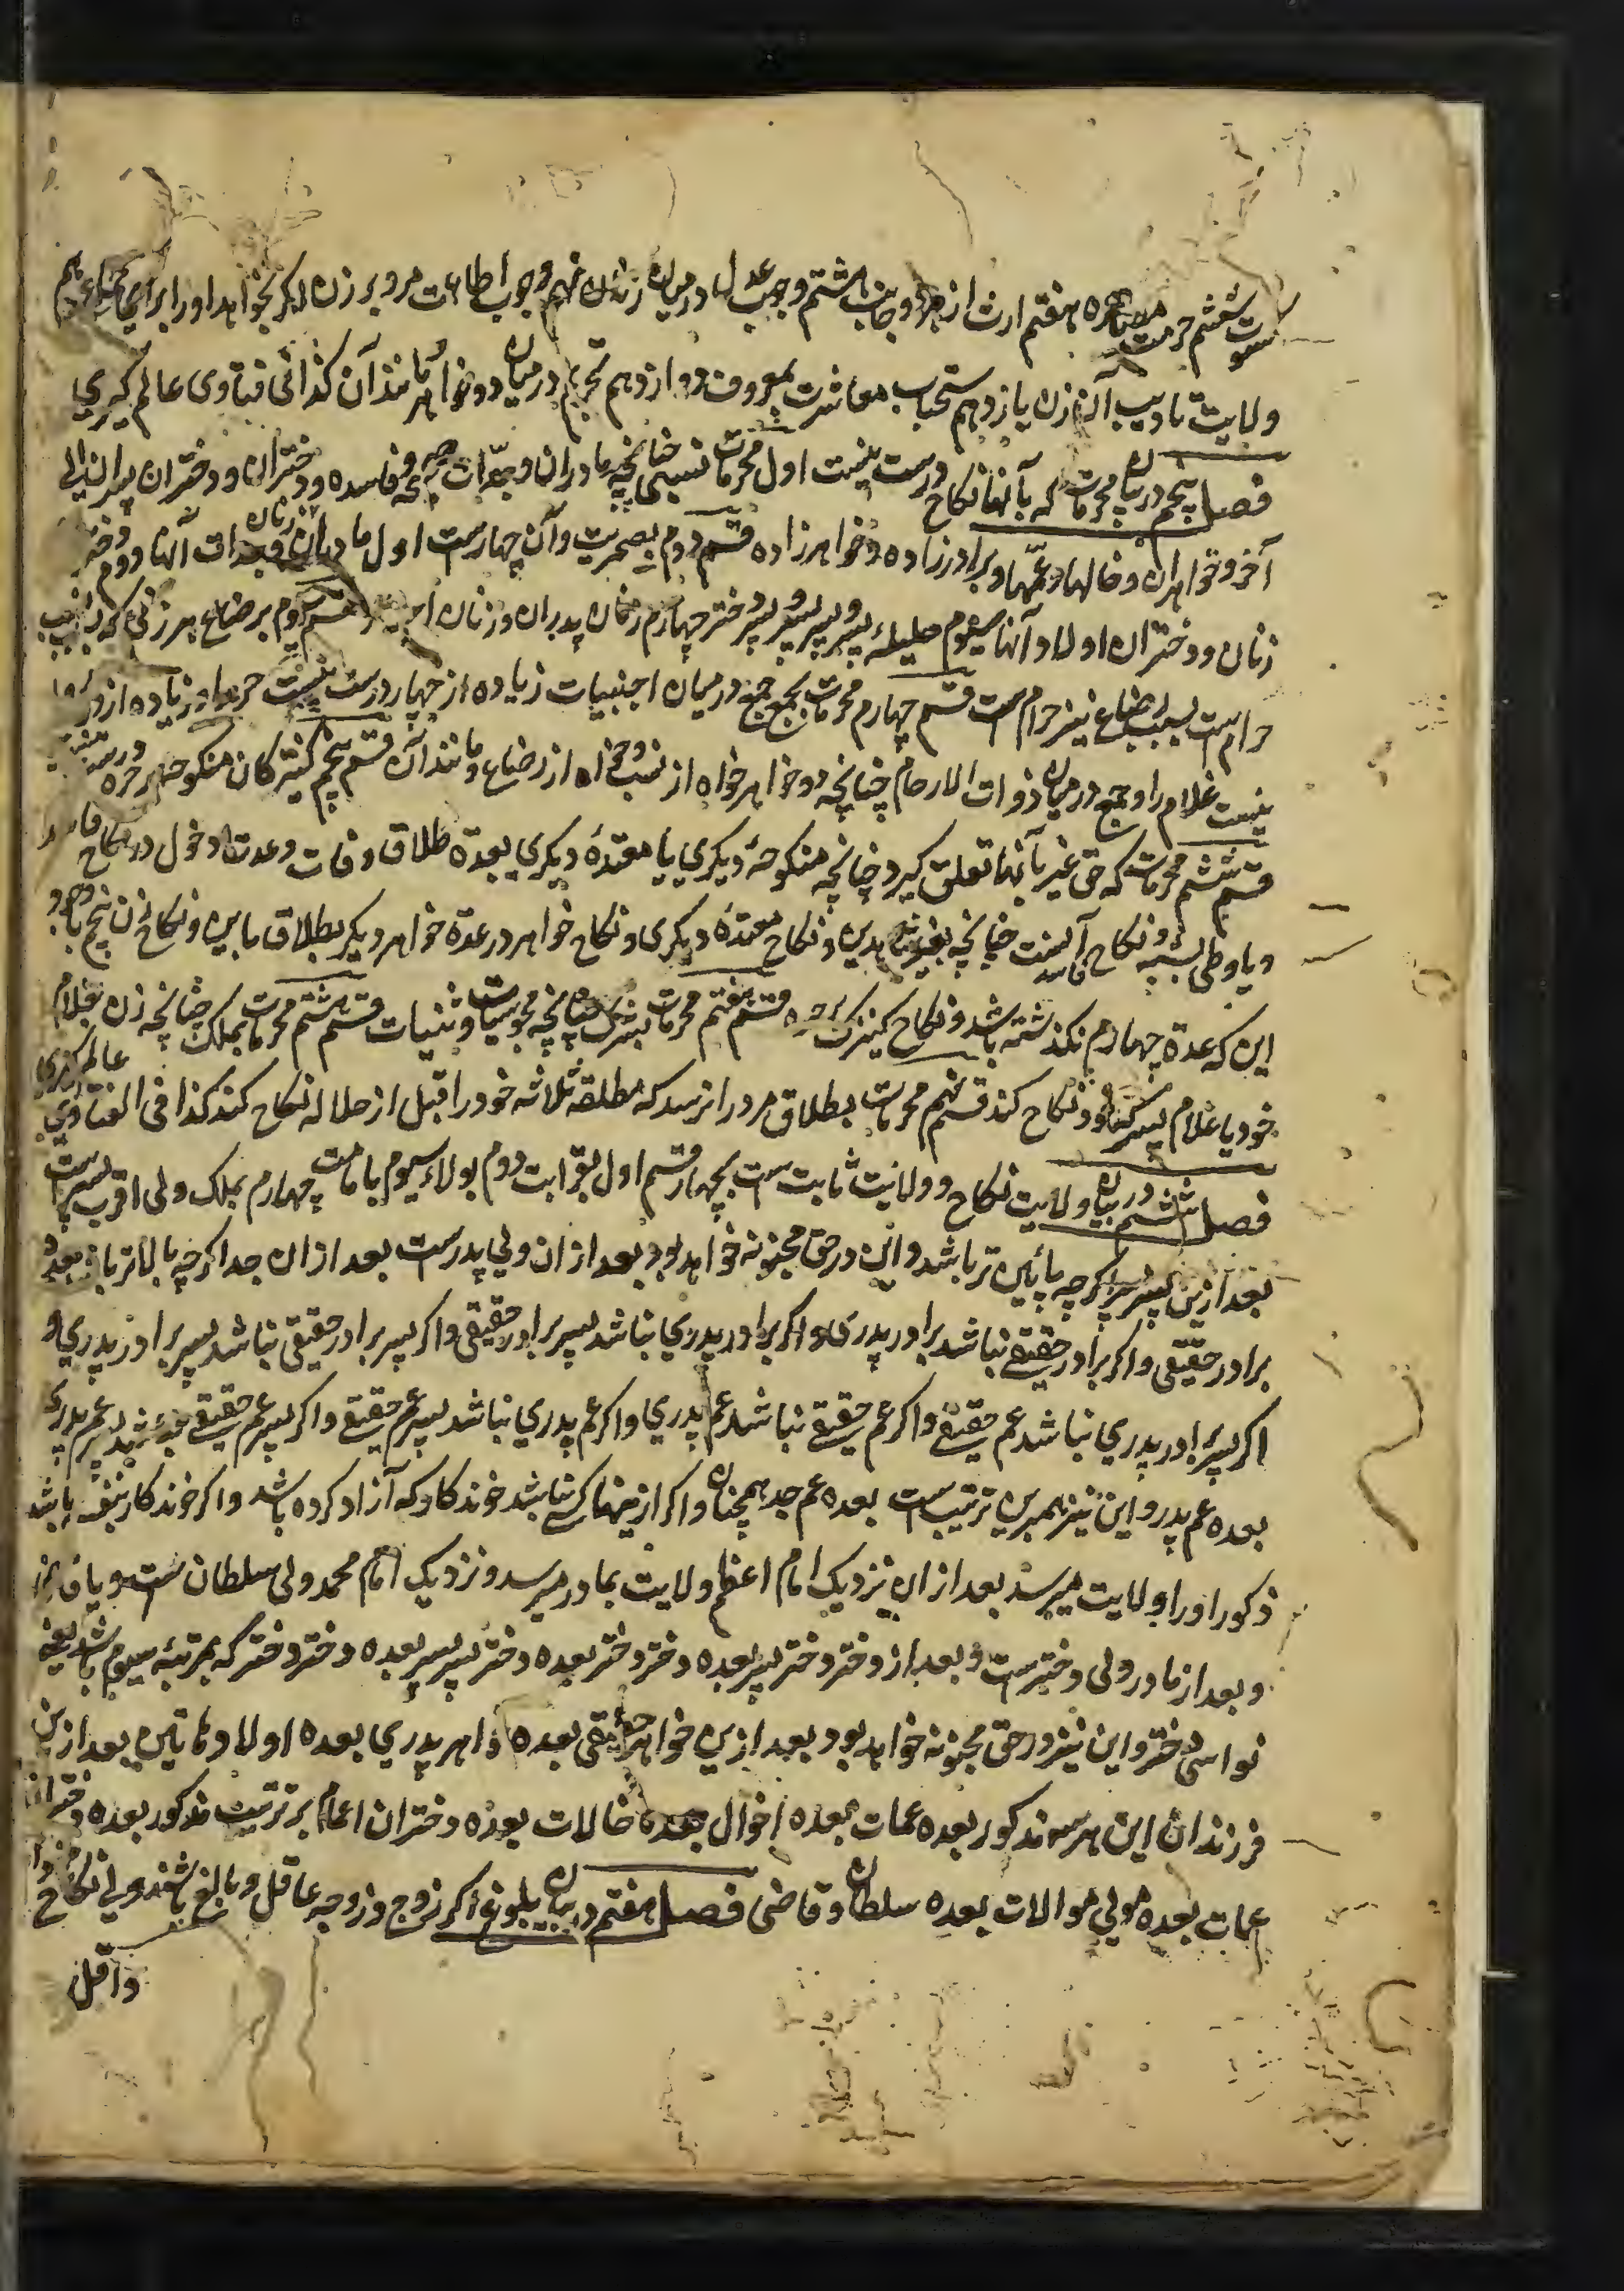 ثبوت ششم حرمت مصاهره هفتم ارث از هر دو جانب هشتم وجوب عدل درمیان زنان نهم وجوب اطاعت مرد بر زن اکر بخواهد او را برای جماع دهم
ولایت تادیب آن زن یازدهم استحباب معاشرت بمعروف دوازدهم تحریم درمیان دو خواهر مانند آن کذا فی فتاوی عالم کیری
فصل پنجم دربیان محرمات که بآنها نکاح درست نیست اول محرمات نسبی چنانچه مادران و جدات صحیحه و فاسده و دختران و دختران پسران الی
آخر و خواهران و خالها و عمها و برادرزاده و خواهرزاده قسم دوم بصهریت و آن چهارست اول مادران زنان و جدات آنها دوم دختر
زنان و دختران اولاد آنها سیوم حلیلهٔ پسر و پسر پسر و پسر دختر چهارم زنان پدران و زنان اجداد قسم سیوم برضاع هر زنی که بنسب
حرام ست بسبب رضاع نیز حرام ست قسم چهارم محرمات بجمع جمع درمیان اجنبیات زیاده از چهار درست نیست حر را و زیاده از دو روا
نیست غلام را و جمع درمیان ذوات الارحام چنانچه دو خواهر خواه از نسب و خواه از رضاع و مانند آن قسم پنجم کنیزکان منکوحه بر حره درست نیست
قسم ششم محرمات که حق غیر بآنها تعلق کیرد چنانچه منکوحهٔ دیکری یا معتدهٔ دیکری بعدة طلاق وفات وعدت دخول در نکاح فاسد
و یا وطی بشبه و نکاح فاسد آنست چنانچه بغیر شاهدین و نکاح معتدهٔ دیکری و نکاح خواهر در عدة خواهر دیکر بطلاق باین و نکاح زن پنجم با وجود
این که عدة چهارم نکذشته باشد و نکاح کنیزک بر حره قسم هفتم محرمات بشرک چنانچه مجوسیات و وثنیات قسم هشتم محرمات بملک چنانچه زن بغلام
خود یا غلام بکنیزک خود نکاح کند قسم نهم محرمات بطلاق مرد را نرسد که مطلقه ثلاثه خود را قبل از حلاله نکاح کند کذا فی الفتاوی عالم کیری
فصل ششم در بیان ولایت نکاح و ولایت ثابت ست بچهار قسم اول بقرابت دوم بولاء سیوم بامامت چهارم بملک ولی اقرب پسرست
بعد ازین پسر پسر اکرچه پائین تر باشد و این در حق مجنونه خواهد بود بعد ازان ولی پدرست بعد ازان جد اکرچه بالاتر باشد بعده
برادر حقیقی و اکر برادر حقیقی نباشد برادر پدری و اکر برادر پدری نباشد پسر برادر حقیقی و اکر پسر برادر حقیقی نباشد پسر برادر پدری و
اکر پسر برادر پدری نباشد عم حقیقی و اکر عم حقیقی نباشد عم پدری و اکر عم پدری نباشد پسر عم حقیقی و اکر پسر عم حقیقی نباشد پسر عم پدری
بعده عم پدر و این نیز همبرین ترتیب ست بعده عم جد همچنان و اکر ازینها کسی نباشد خوندکار که آزاد کرده باشد و اکر خوندکار نیز نباشد
ذکور او را ولایت میرسد بعد ازان نزدیک امام اعظم ولایت بمادر میرسد و نزدیک امام محمد ولی سلطان ست و یا قاضی
و بعد از مادر ولی دخترست و بعد از دختر دختر پسر بعده دختر دختر بعده دختر پسر پسر بعده دختر دختر که بمرتبه سیوم باشد یعنی
نواسی دختر و این نیز در حق مجنونه خواهد بود بعد ازین خواهر حقیقی بعده خواهر پدری بعده اولاد مائین بعد ازین
فرزندان این هر سه مذکور بعده عمات بعده اخوال بعده خالات بعده دختران اعمام بر ترتیب مذکور بعده دختران
عمات بعده مولی موالات بعده سلطان و قاضی فصل هفتم در بیان بلوغ اکر زوج و زوجه عاقل و بالغ باشند ولی نکاح
واقل